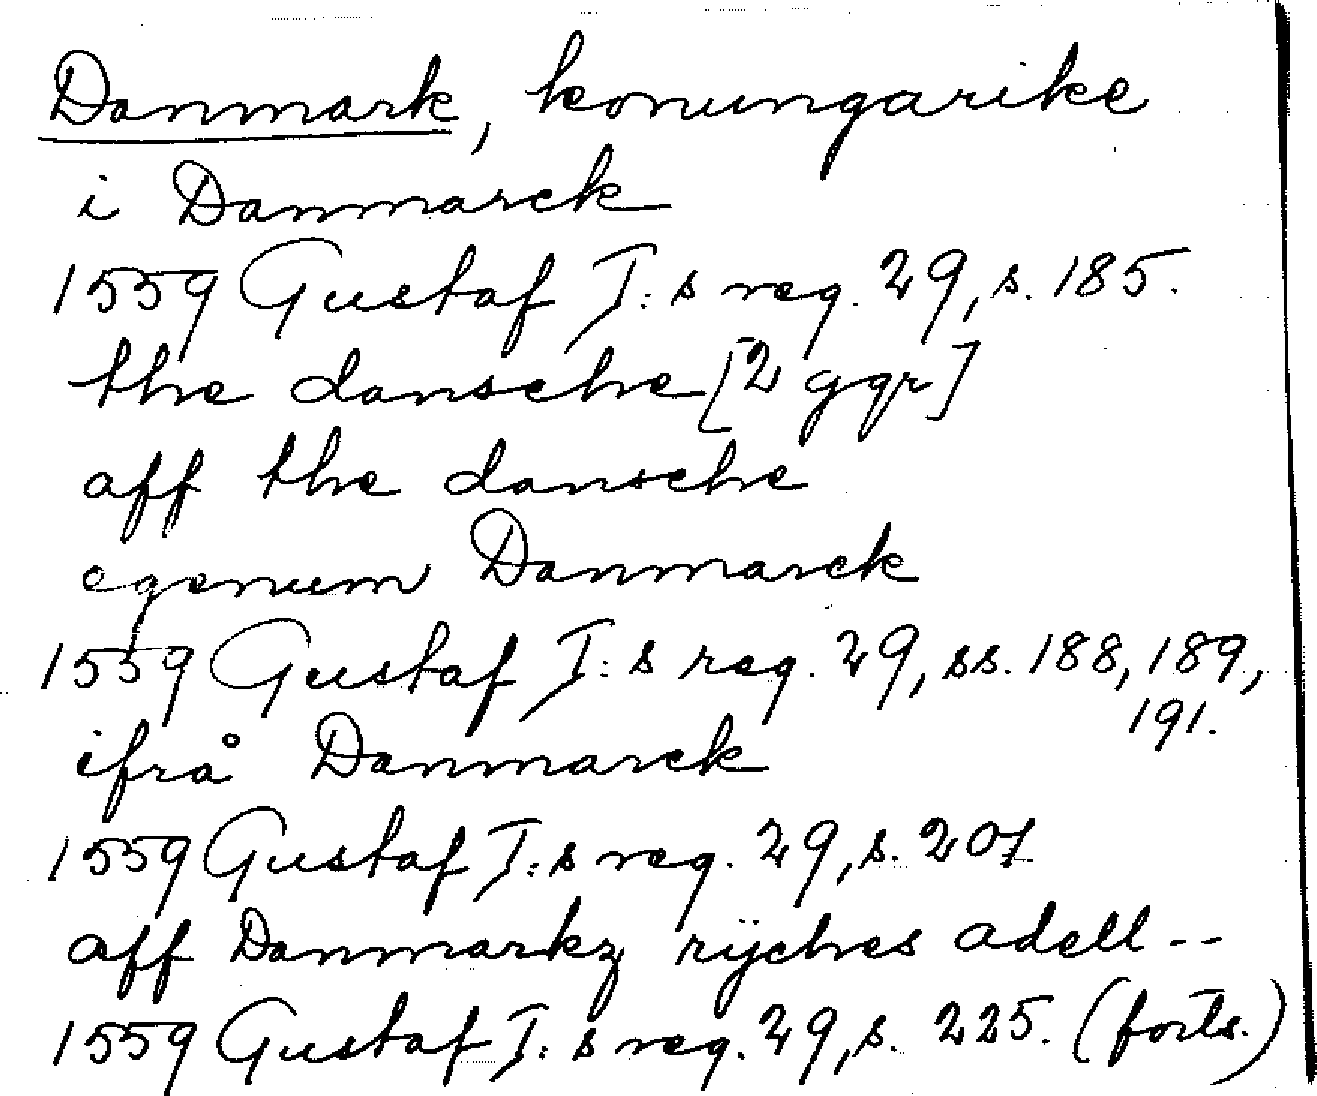 Danmark, konungarike
i Danmarck
1559 Gustaf I:s reg. 29, s. 185.
the dansche [2 ggr]
aff the dansche
egenum Danmarck
1559 Gustaf I:s reg. 29, ss. 188, 189,
191.
ifrå Danmarck
1559 Gustaf I:s reg. 29, s. 207
aff Danmarkz rÿches adell --
1559 Gustaf I:s reg. 29, s. 225. (forts.)